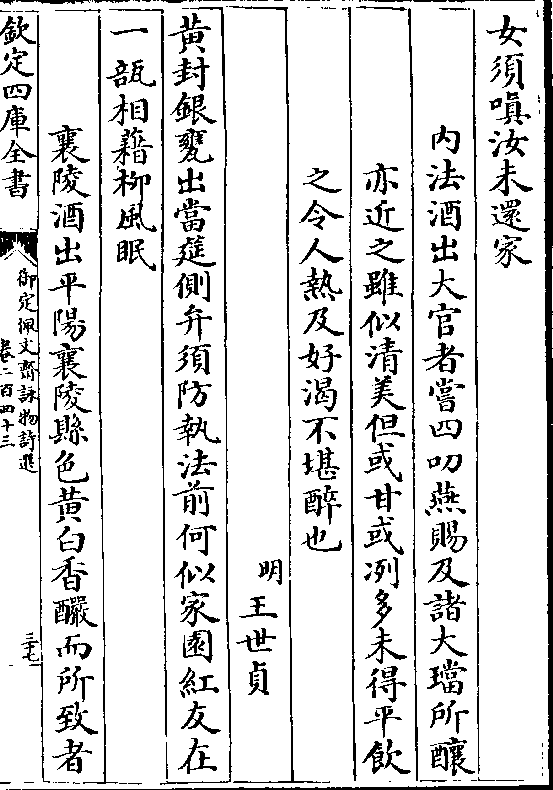 女須嗔汝未還家
内法酒出大官者嘗四叨燕賜及諸大璫所釀
亦近之雖似清美但或甘或冽多未得平飲
之令人熱及好渴不堪醉也
明王世貞
黄封銀甕出當筵側弁須防執法前何似家園紅友在
一瓿相藉柳風眠
襄陵酒出平陽襄陵縣色黄白香釅而所致者
欽定四庫全書
御定佩文齋詠物詩選
卷二百四十三
三十七